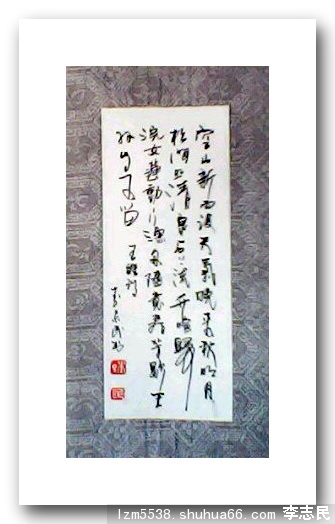 空山新雨後天氣晚來秋明月
松間照清泉石上流竹喧歸
浣女蓮動下漁舟隨意春芳歇王
孫自可留 王維詩
lzm5538.shuhua66.com 李志民